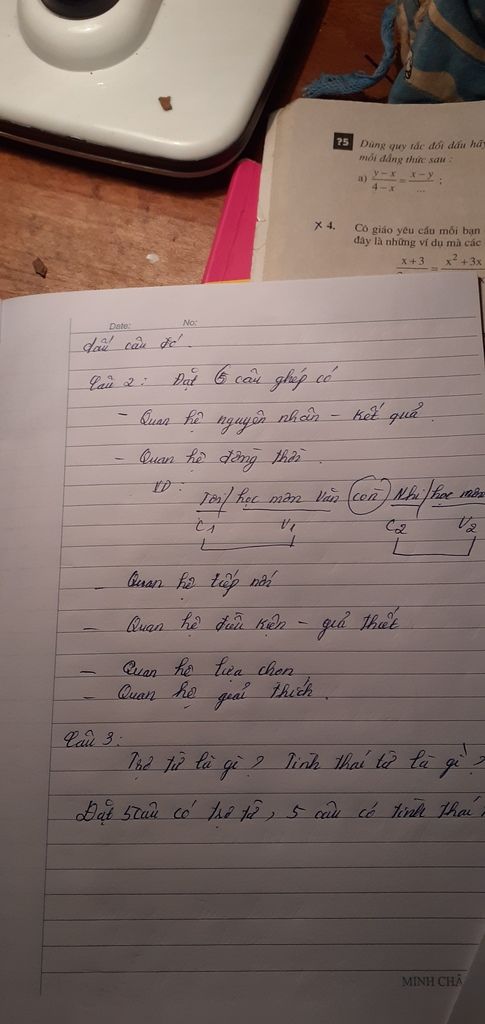 ?5 Dùng quy tắc đổi dấu hãy
mỗi đẳng thức sau :
a) y – x / 4 – x = x – y / ... ;
× 4. Cô giáo yêu cầu mỗi bạn
đây là những ví dụ mà các
x + 3 = x² + 3x
Date: No:
dấu câu đó.
Câu 2 : Đặt 6 câu ghép có
– Quan hệ nguyên nhân – kết quả
– Quan hệ đồng thời.
VD : Tôi / học môn Văn còn Nhi / học môn
C1 V1 C2 V2
– Quan hệ tiếp nối
– Quan hệ điều kiện – giả thiết
– Quan hệ lựa chọn
– Quan hệ giải thích.
Câu 3 :
Trợ từ là gì ? Tình thái từ là gì ?
Đặt 5 câu có trợ từ, 5 câu có tình thái
MINH CHÂ